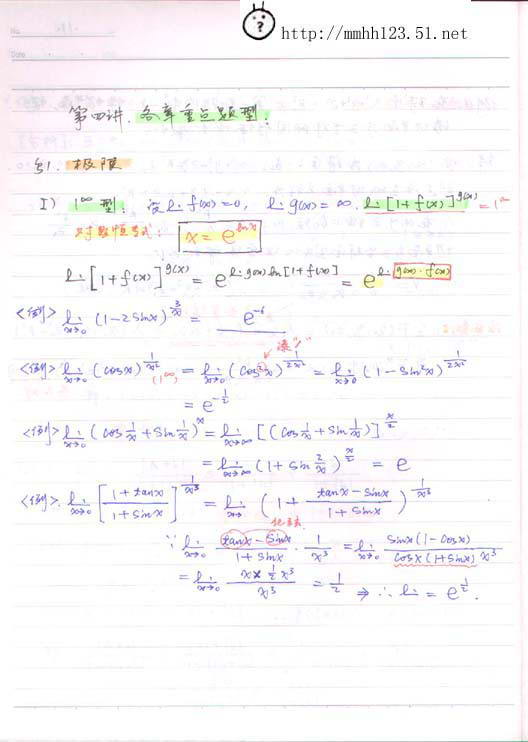 http://mmhh123.51.net
No.
Date
第四讲. 各章重点题型:
§1. 极限
I) 1^∞ 型: 设 li f(x)=0, li g(x)=∞. li [1+f(x)]^{g(x)} = 1^∞
对数恒等式: x = e^{ln x}
li [1+f(x)]^{g(x)} = e^{li g(x) ln[1+f(x)]} = e^{li g(x)·f(x)}
<例> li_{x→0} (1-2sinx)^{3/x} = e^{-6}
漏"2"
<例> li_{x→0} (cosx)^{1/x²} (1^∞) = li_{x→0} (cos²x)^{1/2x²} = li_{x→0} (1-sin²x)^{1/2x²}
= e^{-1/2}
<例> li_{x→0} (cos 1/x + sin 1/x)^x = li_{x→∞} [(cos 1/x + sin 1/x)]^{x/2}
= li_{x→∞} (1+sin 2/x)^{x/2} = e
<例>. li_{x→0} [(1+tanx)/(1+sinx)]^{1/x³} = li_{x→} (1+ (tanx-sinx)/(1+sinx))^{1/x³}
∵ li_{x→0} (tanx-sinx)/(1+sinx) · 1/x³ = li_{x→0} sinx(1-cosx)/(cosx(1+sinx) x³)
= li_{x→0} (x × ½x²)/x³ = 1/2 ⇒ ∴ li = e^{1/2}.